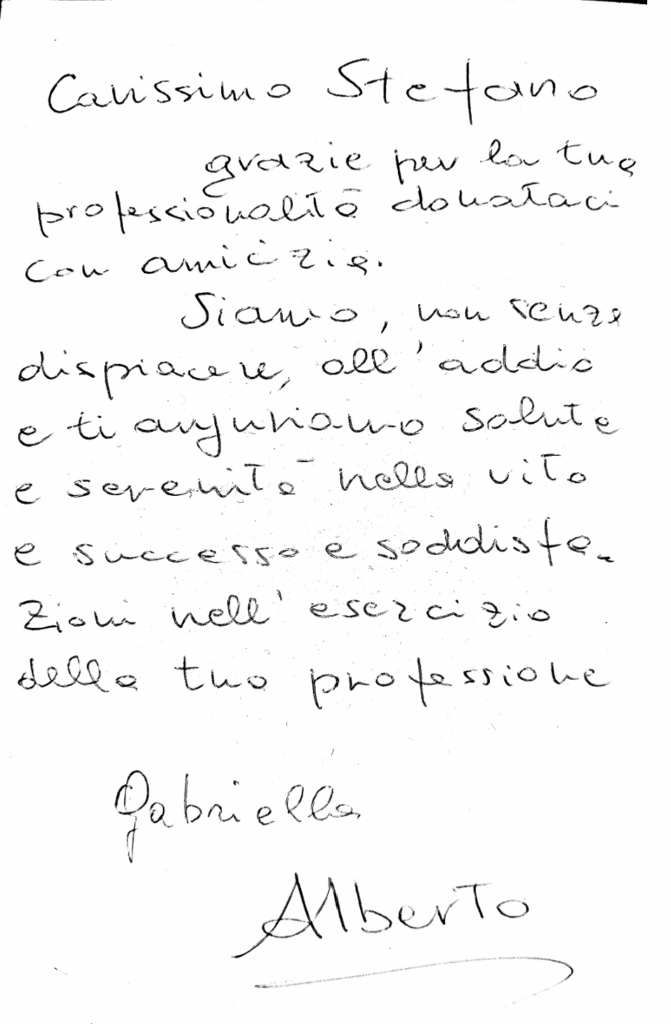 Carissimo Stefano
grazie per la tua
professionalità donataci
con amicizia.
Siamo, non senza
dispiacere, all'addio
e ti auguriamo salute
e serenità nella vita
e successo e soddisfa-
zioni nell'esercizio
della tua professione
Gabriella
Alberto